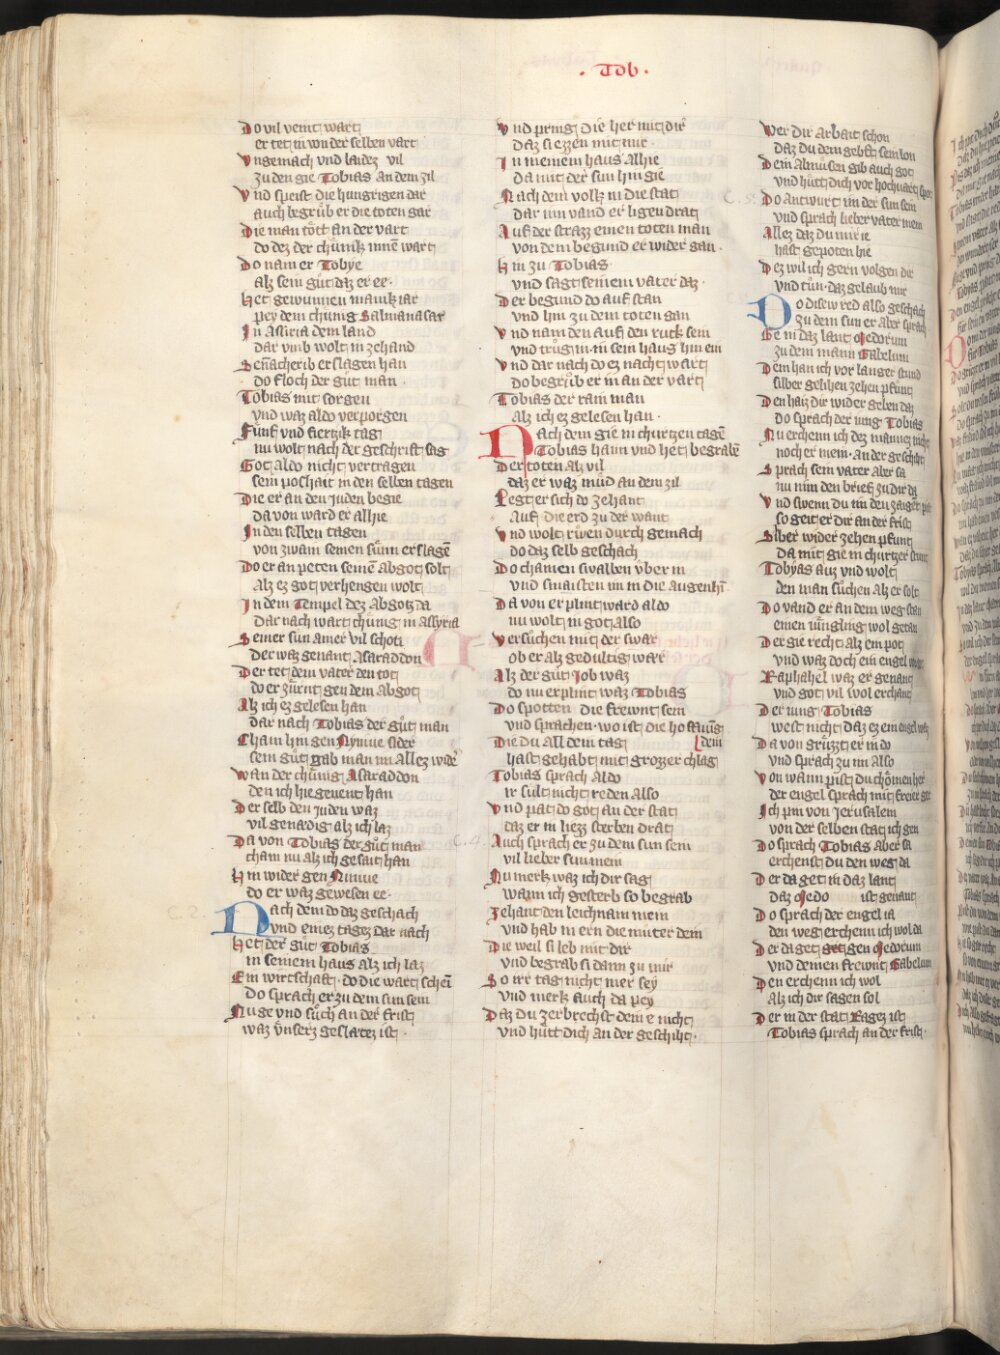 · Tob ·
Do vil veint wart
er tet in wider selben vart
Vngemach vnd laidez vil
zu den gie Tobias an dem zil
Vnd speist die hungrigen dar
auch begrůb er die toten gar
Die man tött an der vart
do dez der chůnik innē wart
Do nam er Tobye
alz sein gůt daz er ee ·
Het gewunnen manik iar
pey dem chůnig Salmanasar
In Asiria dem land
dar vmb wolt in zehand
Senacherib erslagen han
do floch der gůt man ·
Tobias mit sorgen
vnd waz aldo verporgen
Fůnf vnd fiertzik tag
nu wolt nach der geschrift sag
Got aldo nicht vertragen
sein poshait in den selben tagen
Die er an den Juden begie
da von ward er allhie
In den selben tagen
von zwain seinen sůnn erslagē
Do er an peten seinē Abgot solt
alz ez got verhengen wolt
In dem Tempel dez Abgotz da
dar nach wart chůnig in Assyria
Seiner sun ainer vil schon
der waz genant Asaraddon
Der tet dem vater den tot
do er zůrnt gen dem Abgot
Alz ich ez gelesen han
dar nach Tobias der gůt man
Cham hin gen Nyniue sider
sein gůt gab man im allez widē
Wan der chůnig Asaraddon
den ich hie genent han
Der selb den Juden waz
vil genædig alz ich laz
Da von Tobias der gůt man
cham nu alz ich gesait han
Hin wider gen Niniue
do er waz gewesen ee ·
Nach dem do daz geschach
vnd einez tagez dar nach
Het der gůt Tobias
in seinem haus alz ich laz
Ein wirtschaft · do die wart schein
do sprach er zu dem sun sein
Nu ge vnd sůch an der frist
waz vnserz geslætez ist ·
Vnd pring die her mit dir
daz si ezzen mit mir ·
In meinem haus allhie
da mit der sun hin gie
Nach dem volk in die stat
dar inn vand er ligen drat
Auf der strazz einen toten man
von dem begund er wider gan ·
Hin zu Tobias
vnd sagt seinem vater daz ·
Der begund do auf stan
vnd hin zu dem toten gan
Vnd nam den auf den ruck sein
vnd trůg in in sein haus hin ein
Vnd dar nach do ez nacht wart
do begrůb er in an der vart
Tobias der rain man
alz ich ez gelesen han ·
Nach dem gie in churtzen tagē
Tobias hainn vnd het begrabē
Der toten alz vil
daz er waz můd an dem zil
Legt er sich do zehant
auf die erd zu der want
Vnd wolt růwen durch gemach
do daz selb geschach
Do chamen swalben vber in
vnd smaisten im in die augen hī
Da von er plint ward aldo
nu wolt in got also
Versůchen mit der swær
ob er alz gedultig wær
Alz der gůt Job waz
do nu erplint waz Tobias
Do spotten die frewnt sein
vnd sprachen · wo ist die hofnūg
dein
Die du all dein tag
hast gehabt mit grozzer chlag
Tobias sprach aldo
ir sult nicht reden also
Vnd pat do got an der stat
daz er in liezz sterben drat
Auch sprach er zu dem sun sein
vil lieber sun mein
Nu merk waz ich dir sag
wann ich gesterb so begrab
Zehant den leichnam mein
vnd hab in ern die můter dein
Die weil si leb mit dir
vnd begrab si dann zu mir
So irr tag nicht mer sey
vnd merk auch da pey
Daz du zerbrechst dein e nicht
vnd hůtt dich an der geschiht ·
Wer dir arbait schon
daz du dem gebst sein lon
Dein almůsen gib auch got
vnd hütt dich vor hochuart
Do antwurt im der sun sein
vnd sprach lieber vater mein
Allez daz du mir ie
hast gepoten hie
Dez wil ich gern volgen dir
vnd tůn · daz gelaub mir
Do disew red also geschach
zu dem sun er aber sprach
Ge in daz lant Medorum
zu dem mann Gabelum
Dem han ich vor langer stund
silber gelihen zehen pfunt
Den haiz dir wider geben daz
do sprach der iung Tobias
Nu erchenn ich dez mannez nicht
noch er mein · an der geschiht
Sprach sein vater aber sa
nu nim den brief zu dir da
Vnd swenn du im den zaigest
so geit er dir an der frist
Silber wider zehen pfunt
da mit gie in churtzer stunt
Tobyas auz vnd wolt
den man sůchen alz er solt
Do vand er an dem weg stan
einen iüngling wol getan
Der gie recht alz ein pot
vnd waz doch ein engel
Raphahel waz er genant
vnd got vil wol erchant
Der iung Tobias
west nicht daz ez ein engel waz
Da von grůzzt er in do
vnd sprach zu im also
Von wann pist du chömen her
der engel sprach mit freier ger
Ich pin von Jerusalem
von der selben stat ich gen
Do sprach Tobias aber sa
erchenst du den weg da
Der da get in daz lant
daz Medo ist genant
Do sprach der engel ia
den weg erchenn ich wol da
Der da get get gen Medorum
vnd deinen frewnt Gabelum
Den erchenn ich wol
alz ich dir sagen sol
Der in der stat Ragez ist
Tobias sprach an der frist ·